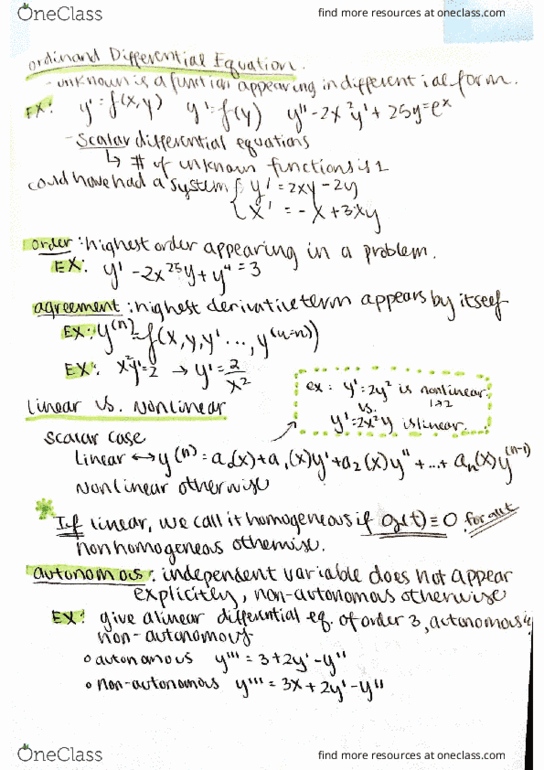 OneClass
find more resources at oneclass.com
ordinand Differential Equation.
- unknown is a function appearing in differential form.
EX: y' = f(x,y) y' = f(y) y'' - 2x²y' + 25y = eˣ
- Scalar differential equations
↳ # of unknown functions is 1
could have had a system { y' = 2xy - 2y
x' = -x + 3xy
order: highest order appearing in a problem.
EX: y' - 2x²⁵y + y'' = 3
agreement: highest derivative term appears by itself
EX: y⁽ⁿ⁾ = f(x, y, y' ..., y⁽ⁿ⁻ⁿ⁾)
EX: x²y' = 2 → y' = 2/x²
ex: y' = 2y² is nonlinear.
1→2
vs.
y' = 2x²y is linear.
linear vs. Nonlinear
scalar case
linear ↔ y⁽ⁿ⁾ = a₀(x) + a₁(x)y' + a₂(x)y'' + ... + aₙ(x)y⁽ⁿ⁻¹⁾
nonlinear otherwise
* If linear, we call it homogeneous if (t) ≡ 0 for all t
nonhomogeneous otherwise.
autonomous: independent variable does not appear
explicitly, non-autonomous otherwise
EX: give a linear differential eq. of order 3, autonomous &
non-autonomous
○ autonomous y''' = 3 + 2y' - y''
○ non-autonomous y''' = 3x + 2y' - y''
OneClass
find more resources at oneclass.com